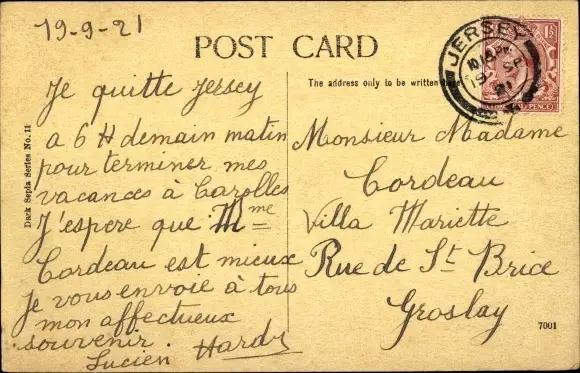 19-9-21
POST CARD
The address only to be written here
JERSEY
1½
Je quitte Jersey
a 6 H demain matin
pour terminer mes
vacances à Carolles
J'espere que Mme
Cordeau est mieux
je vous envoie à tous
mon affectueux
souvenir.
Lucien Hardy
Monsieur Madame
Cordeau
Villa Mariette
Rue de St Brice
Groslay
Dark Sepia Series No. 11
7001